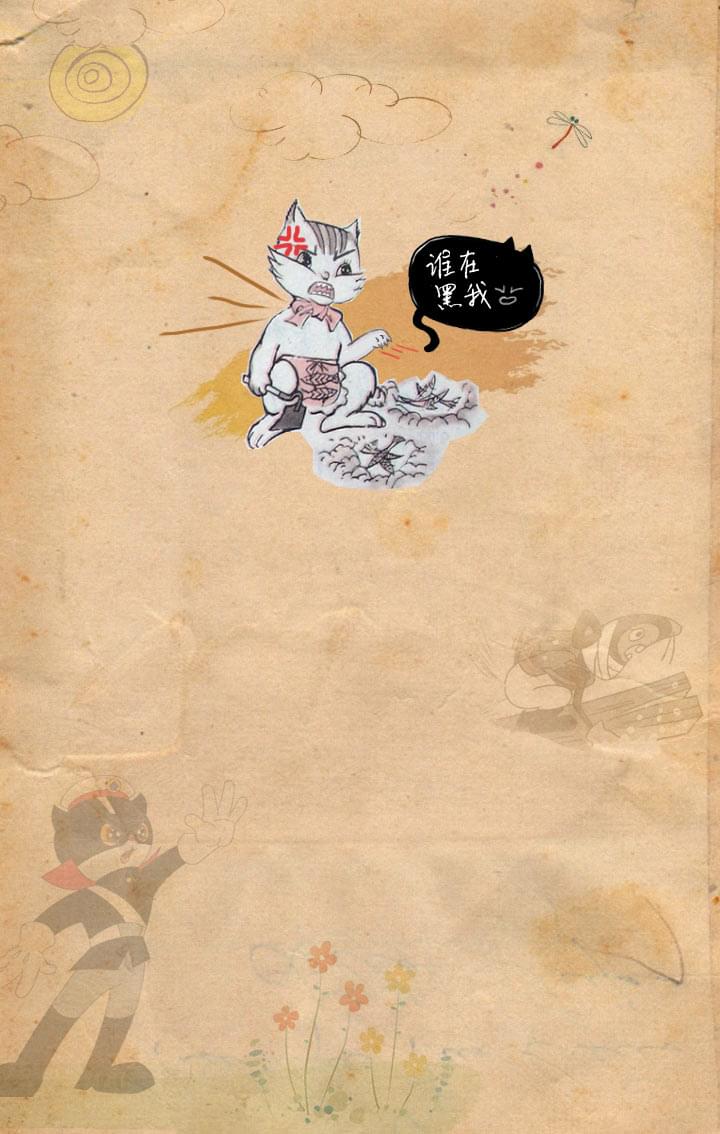 谁在
黑我